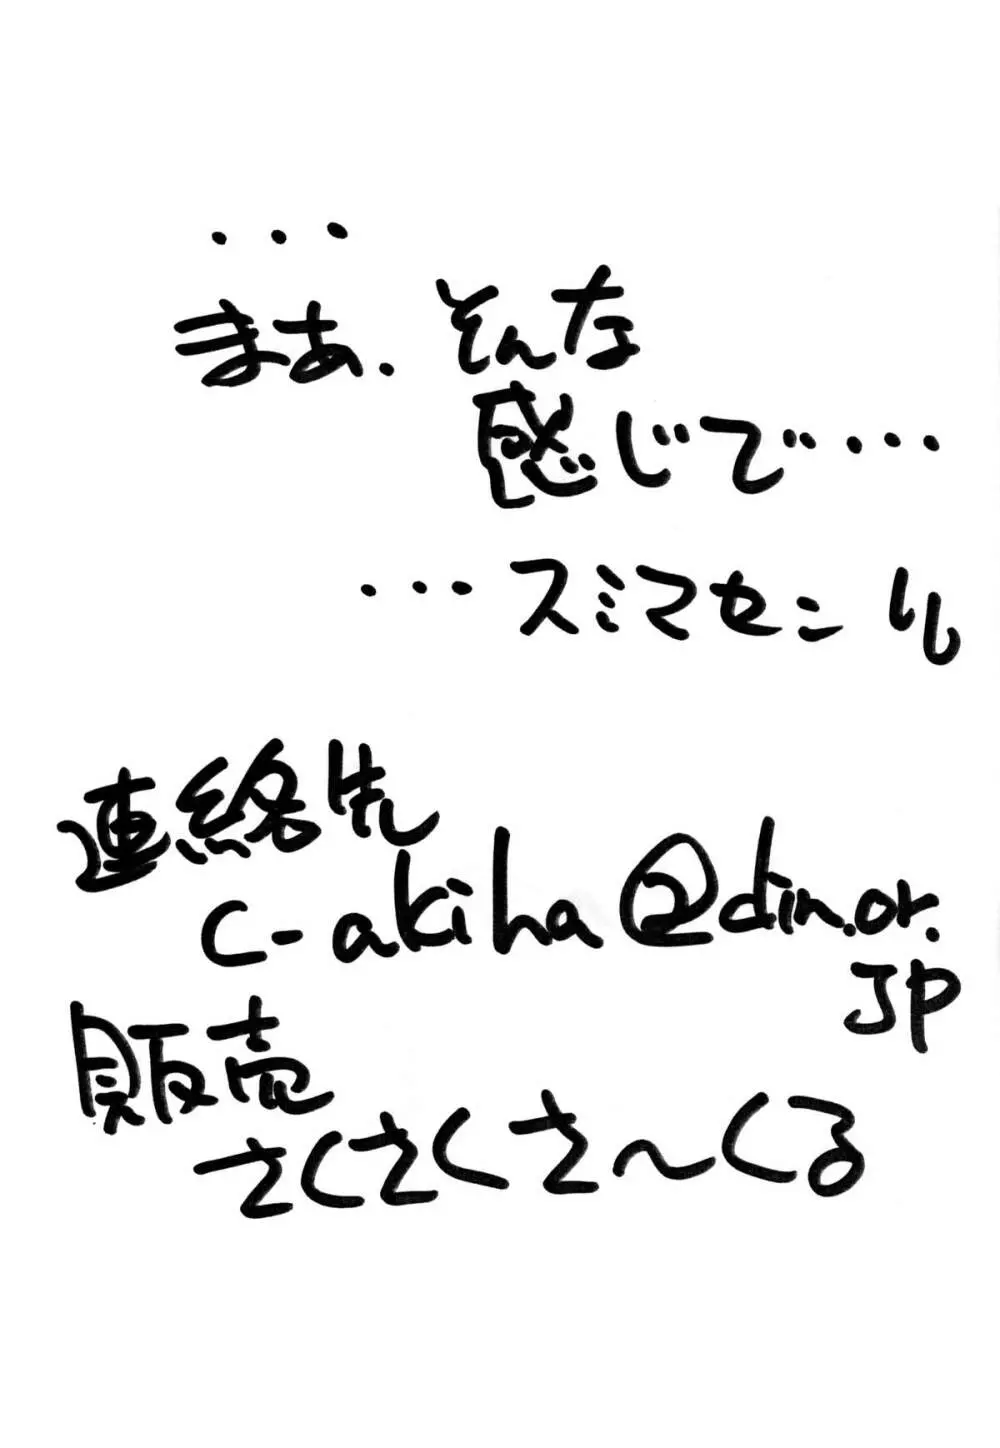 ・・・
まあ、そんな
感じで・・・・
・・・スミマセン
連絡先
c-akiha@din.or.
JP
販売
さくさくさ〜くる